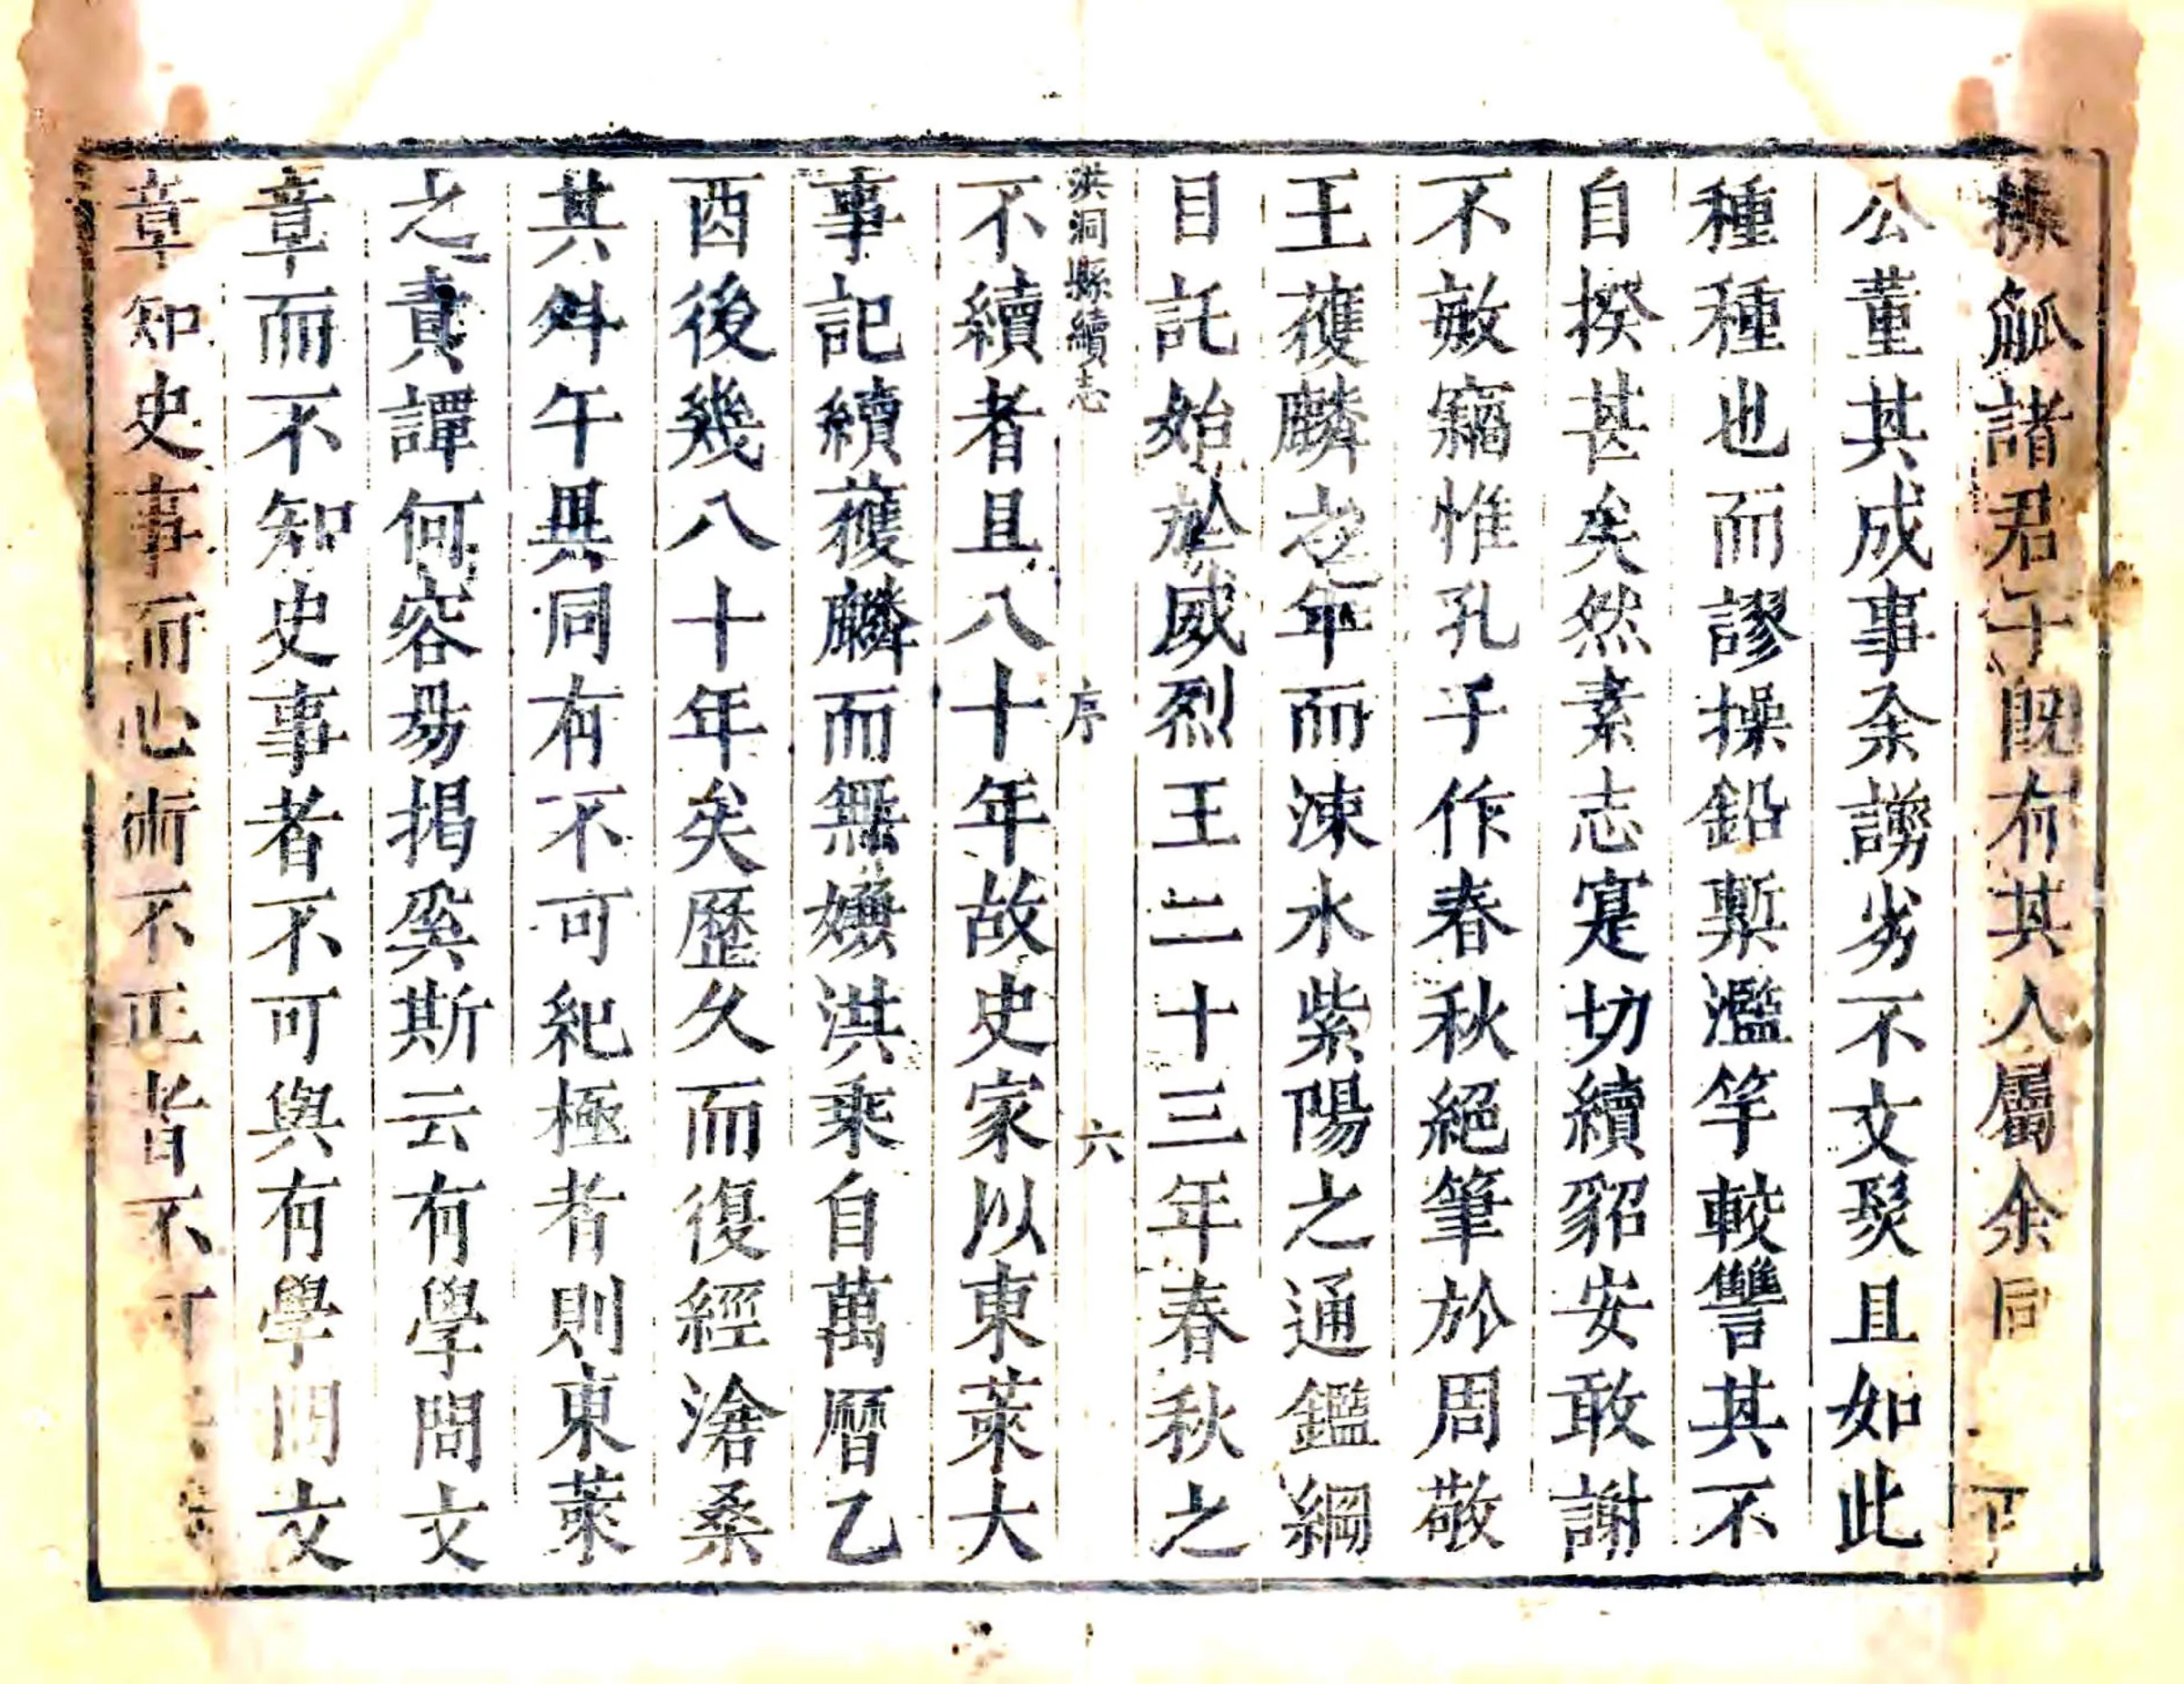 操觚諸君子旣有其人屬余同
公董其成事余謭劣不文髮且如此
種種也而謬操鉛槧濫竽較讐其不
自揆甚矣然素志寔切續貂安敢謝
不敏竊惟孔子作春秋絕筆於周敬
王獲麟之年而涑水紫陽之通鑑綱
目託始於威烈王二十三年春秋之
洪洞縣續志 序 六
不續者且八十年故史家以東萊大
事記續獲麟而無嫌洪乘自萬曆乙
酉後幾八十年矣歷久而復經滄桑
其舛午異同有不可紀極者則東萊
之責譚何容易揭奚斯云有學問文
章而不知史事者不可與有學問文
章知史事而心術不正者不可